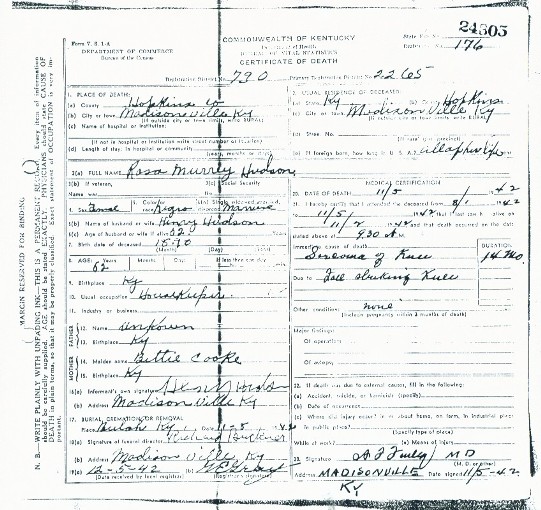 24805
Form V. S. 1-A
DEPARTMENT OF COMMERCE
Bureau of the Census
COMMONWEALTH OF KENTUCKY
BUREAU OF VITAL STATISTICS
CERTIFICATE OF DEATH
State File No.
176
Registration District No. 790
Primary Registration District No. 2265
MARGIN RESERVED FOR BINDING
N. B.—WRITE PLAINLY WITH UNFADING INK—THIS IS A PERMANENT RECORD. Every item of information
should be carefully supplied. AGE should be stated EXACTLY. PHYSICIANS should state CAUSE OF
DEATH in plain terms, so that it may be properly classified. Exact statement of OCCUPATION is very important.
1. PLACE OF DEATH:
(a) County Hopkins Co
(b) City or town Madisonville Ky
(If outside city or town limits, write RURAL)
(c) Name of hospital or institution:
(If not in hospital or institution write street number or location)
(d) Length of stay: In hospital or community
2. USUAL RESIDENCE OF DECEASED:
(a) State Ky (b) County Hopkins
(c) City or town Madisonville Ky
(d) Street No.
(e) If foreign born, how long in U. S. A.?
3(a) FULL NAME Rosa Murrey Hudson
3(b) If veteran,
Name war
3(c) Social Security
No.
5. Color or race Negro
6(b) Name of husband or wife Henry Hudson
6(c) Age of husband or wife if alive 62 Years
7. Birth date of deceased
(Month) (Day) (Year)
8. AGE: Years Months Days If less than one day
62
9. Birthplace Ky
10. Usual occupation HouseKeeper
11. Industry or business
FATHER
12. Name Unkown
13. Birthplace Ky
MOTHER
14. Maiden name Bettie Cooke
15. Birthplace Ky
16(a) Informant's own signature Henry Hudson
(b) Address Madisonville Ky
17. BURIAL, CREMATION OR REMOVAL
Place Beulah Ky
18(a) Signature of funeral director Richard
(b) Address Madisonville Ky
19(a) 12-5-42 (b)
(Date received by local registrar) (Registrar's signature)
MEDICAL CERTIFICATION
20. DATE OF DEATH 11/5 1942
21. I hereby certify that I attended the deceased from 8/1 1942
to 11/5 1942 that I last saw h alive on
11/2 1942 and that death occurred on the date
stated above at 830 A m.
Immediate cause of death DURATION
of Knee 14 mo.
Due to Fall striking Knee
Other conditions none
(Include pregnancy within 3 months of death)
Major findings:
Of operations
Of autopsy
22. If death was due to external causes, fill in the following:
(a) Accident, suicide, or homicide (specify)
(b) Date of occurrence
(c) Where did injury occur? in or about home, on farm, in industrial place
in public place?
(Specify type of place)
While at work? (e) Means of injury
23. Signature MD
(M. D. or other)
Address MADISONVILLE Date signed 11/5-42
Ky